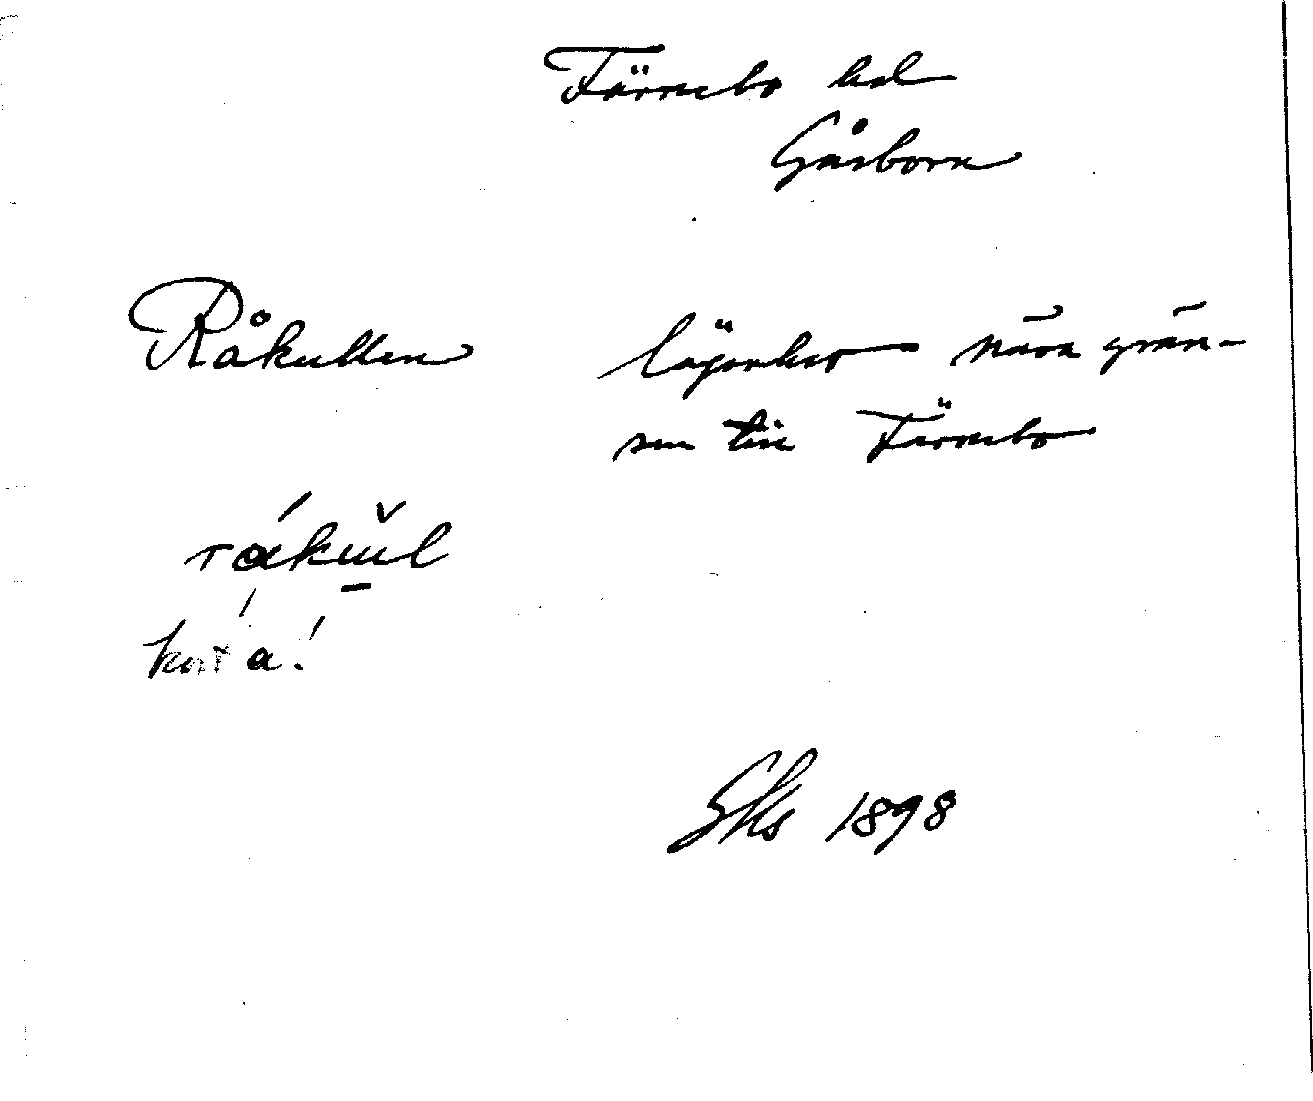 Färnebo hd
Gåsborn
Råkullen lägenhet nära grän-
sen till Färnebo
råkul
kort a!
Sks 1898